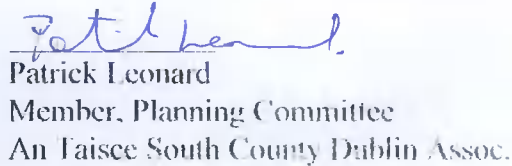 Patrick Leonard
Patrick Leonard
Member, Planning Committee
An Taisce South County Dublin Assoc.